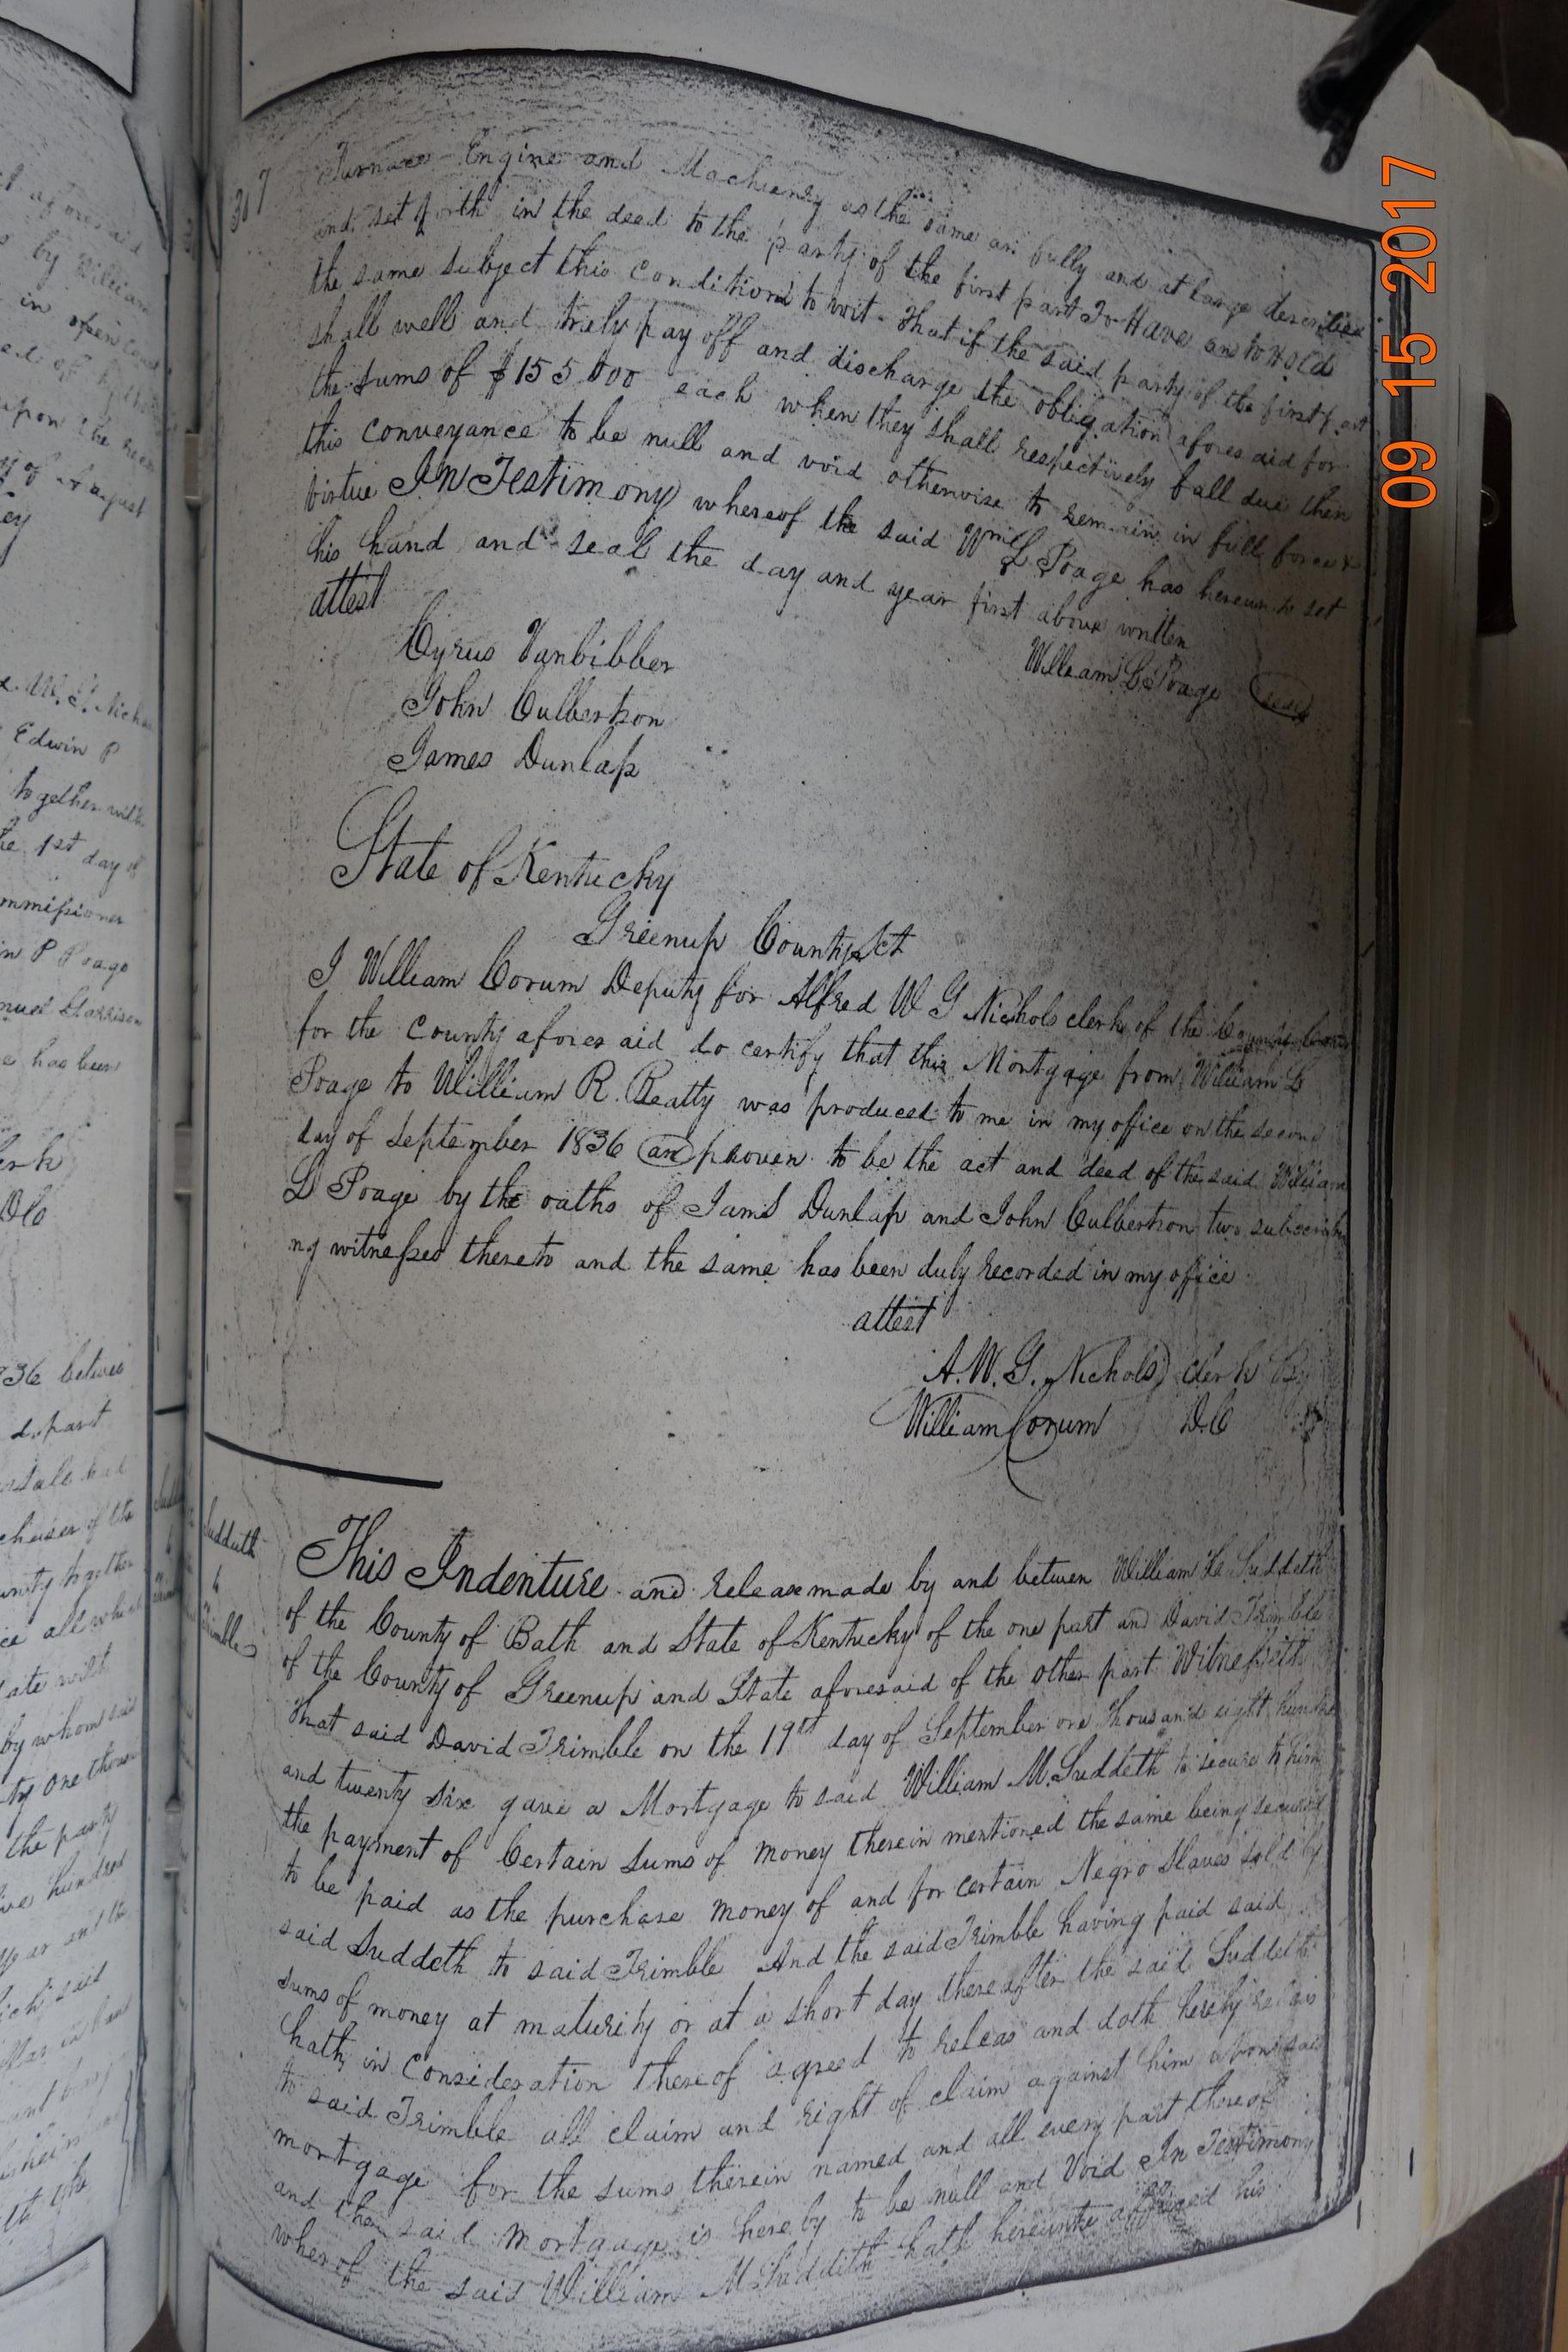 307
Furnace Engine and Machienery as the same are fully and at large described
and set forth in the deed to the party of the first part To Have an to Hold
the same subject this condition to wit - that if the said party of the first part
shall well and truly pay off and discharge the obligation aforesaid for
the sums of $155000 each when they shall respectively fall due then
this conveyance to be null and void otherwise to remain in full force &
virtue In Testimony whereof the said Wm L Poage has hereunto set
his hand and seal the day and year first above written
attest
William L Poage seal
Cyrus Vanbibber
John Culbertson
James Dunlap
State of Kentucky
Greenup County Sct
I William Corum Deputy for Alfred W G Nichols clerk of the County Court
for the County aforesaid do certify that this Mortgage from William L
Poage to William R. Beatty was produced to me in my office on the second
day of September 1836 an proven to be the act and deed of the said William
L Poage by the oaths of Jams Dunlap and John Culbertson two subscribi
ng witnesses thereto and the same has been duly recorded in my office
attest
A. W. G. Nichols clerk By
William Corum D.C
Sudduth
to
Trimble
This Indenture and release made by and betwen William M Suddeth
of the County of Bath and State of Kentucky of the one part and David Trimble
of the County of Greenup and State aforesaid of the other part Witnesseth
That said David Trimble on the 19th day of September one thousand eight hundred
and twenty six gave a Mortgage to said William M. Suddeth to secure to him
the payment of Certain sums of money therein mentioned the same being secured
to be paid as the purchase money of and for certain Negro Slaves sold by
said Suddeth to said Trimble And the said Trimble having paid said
sums of money at maturity or at a short day thereafter the said Suddeth
hath in Consideration thereof agreed to releas and doth hereby releas
to said Trimble all claim and right of claim against him upon said
mortgage for the sums therein named and all every part thereof
and the said mortgage is hereby to be null and Void In Testimony
wherof the said William M Suddeth hath hereunto affixed his
by William
in open court
upon the
of August
Edwin P
together with
1st day of
ommissioner
in P Poage
has been
D C
36 betwee
part
all which
by whom said
ty one thous
the party
hundred
09 15 2017